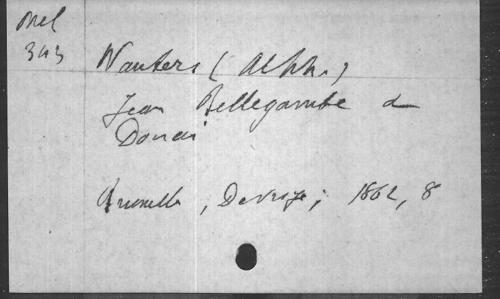 Mel
343
Wauters (Alph.)
Jean Bellegambe de
Douai
Bruxelles, Devroye, 1862, 8